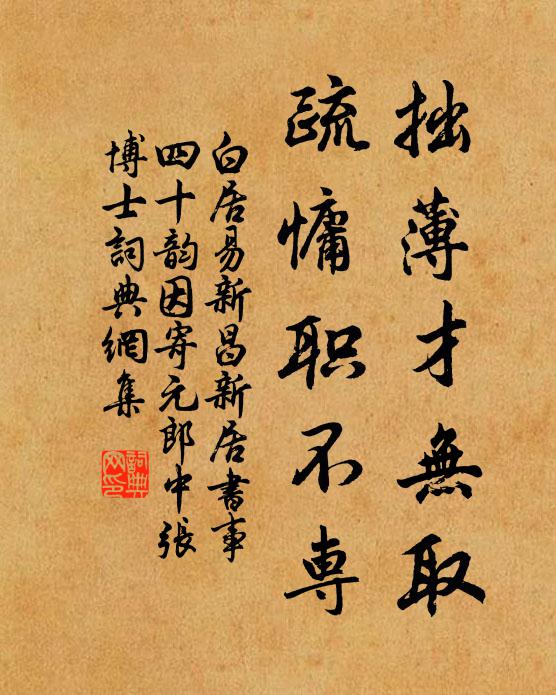 拙薄才無取
疏慵职不専
白居易新昌新居書事
四十韵因寄元郎中張
博士詞典網集
詞典
网印